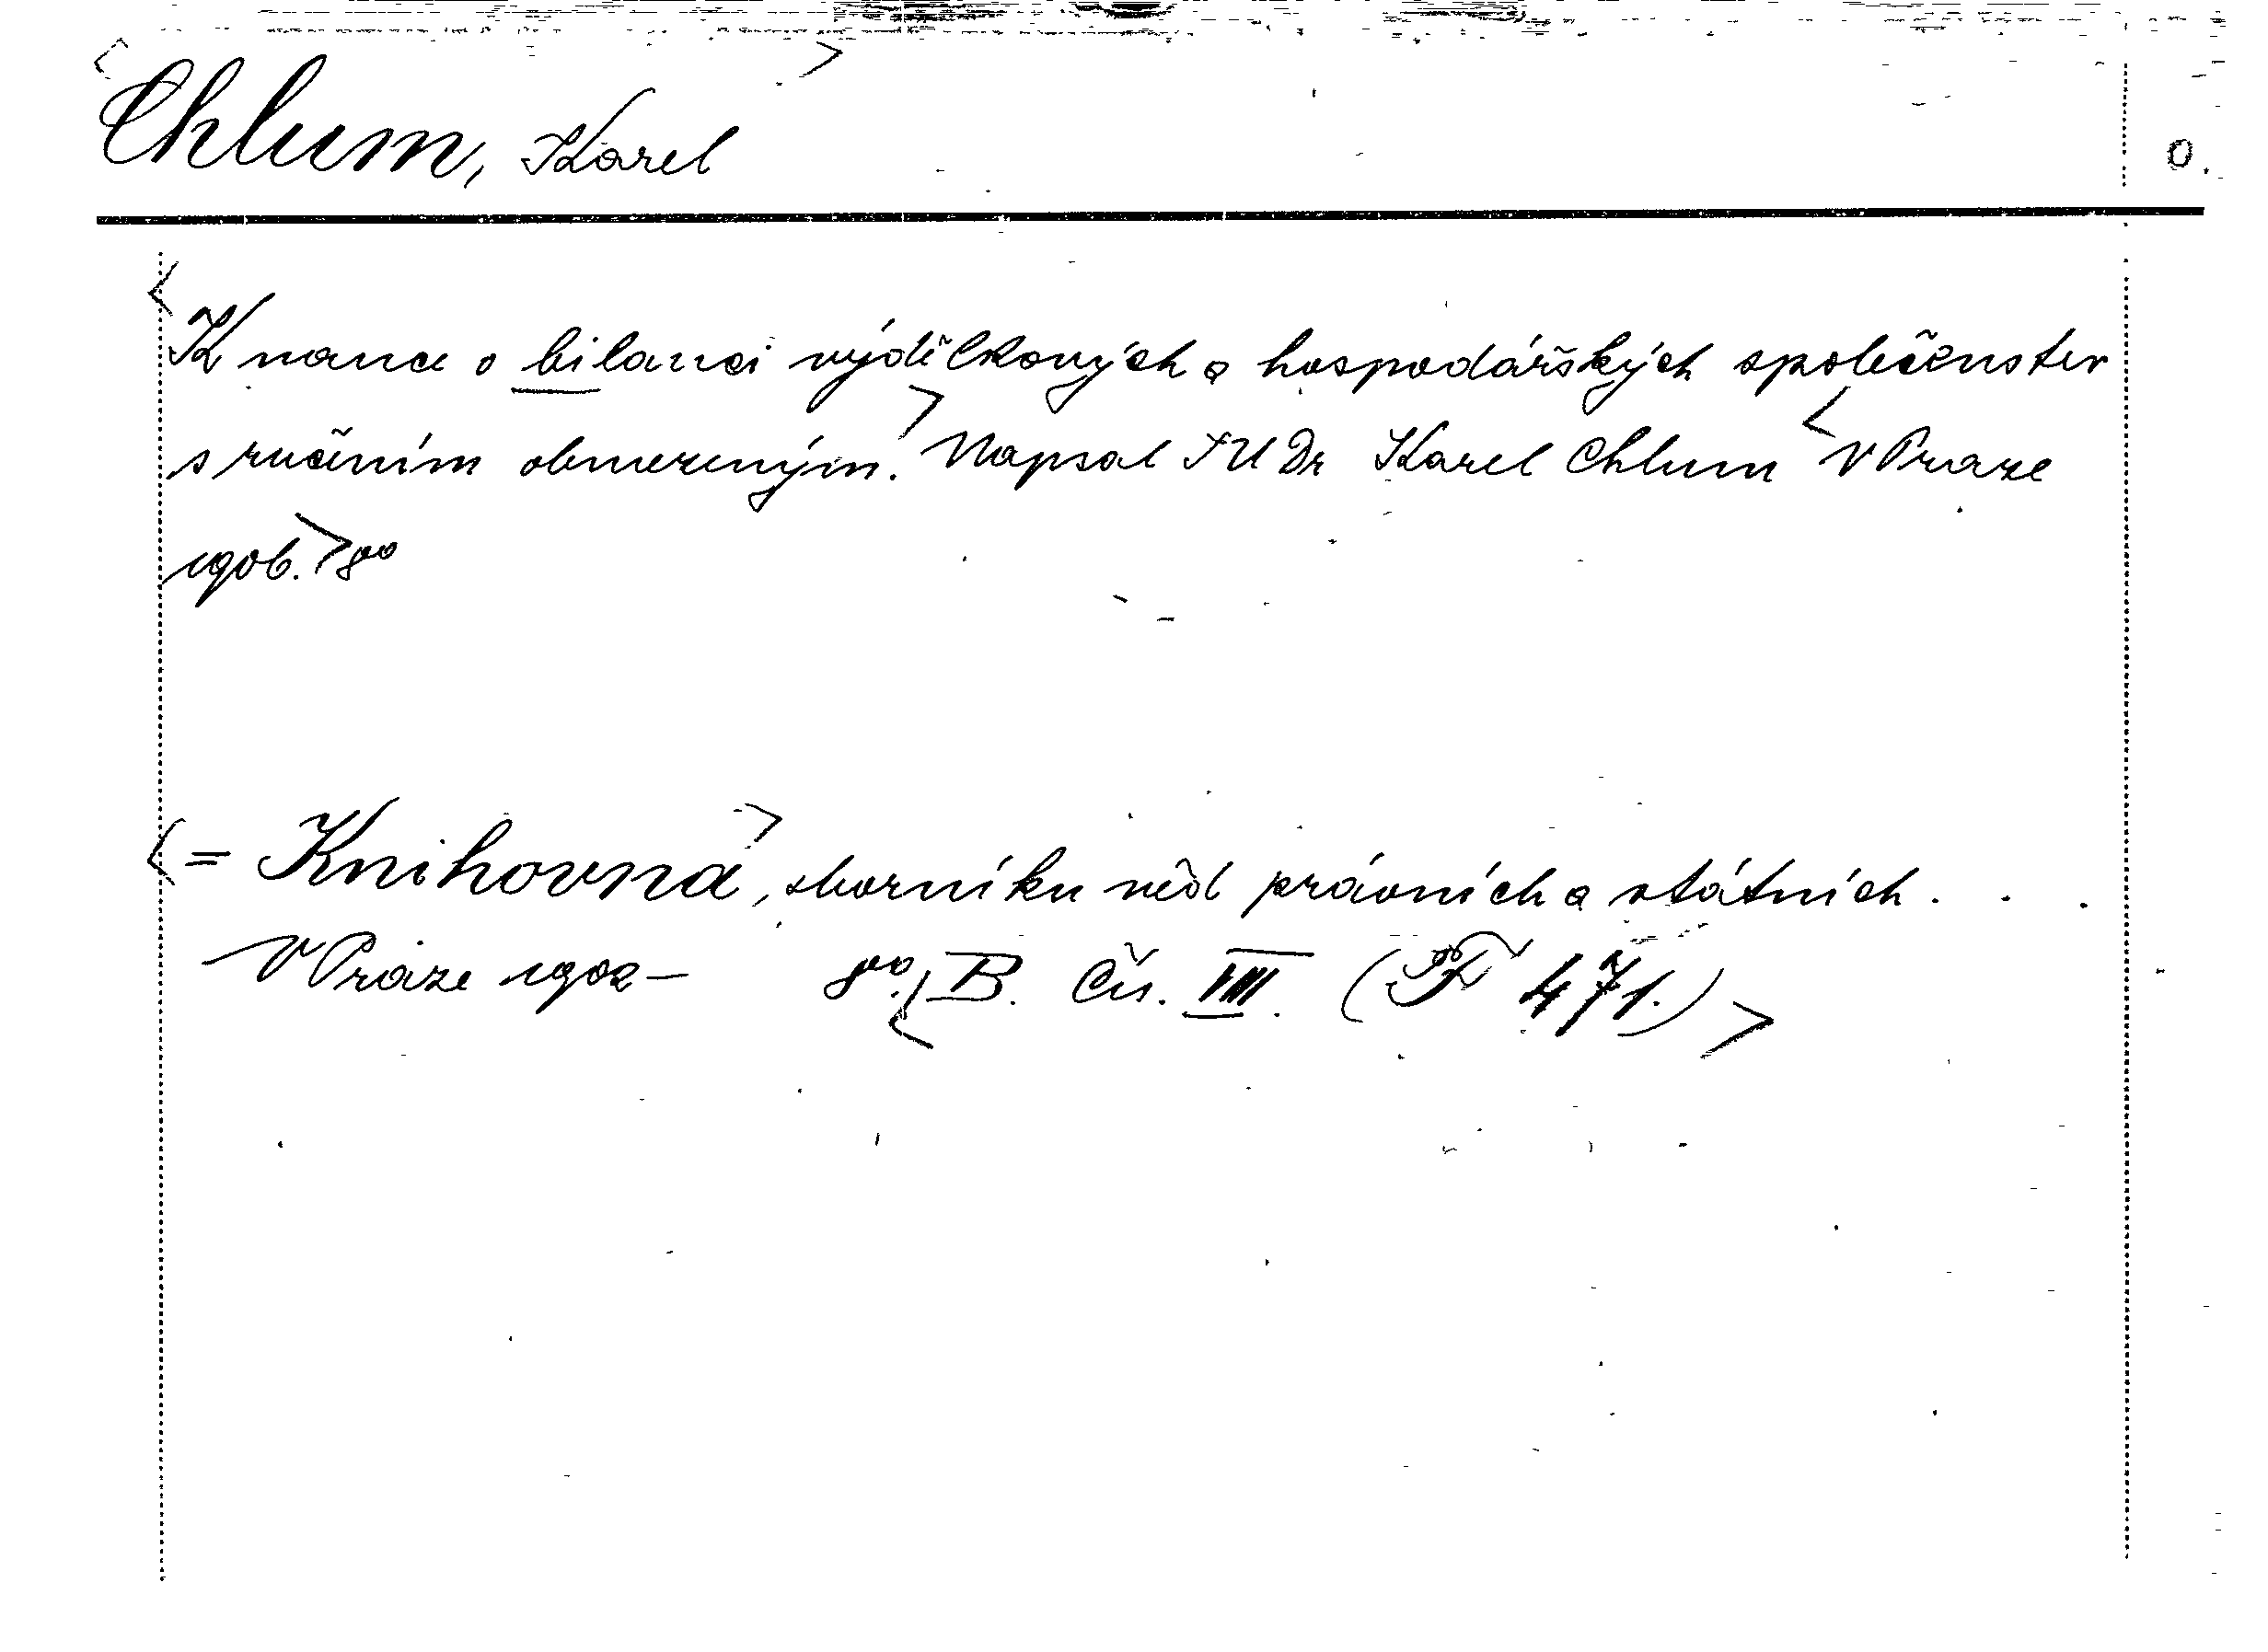 Chlum, Karel
O.
K nauce o bilanci výdělkových a hospodářských společenstev
s ručením obmezeným. Napsal JUDr Karel Chlum V Praze
1906. 8°
= Knihovna, sborníku věd právních a státních . . .
V Praze 1902– 8°. B. Čís. VIII. ( F 471.)